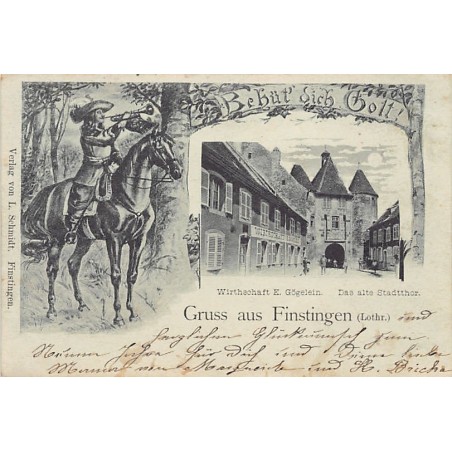 Behüt' dich Gott!
Wirthschaft E. Gögelein. Das alte Stadtthor.
Gruss aus Finstingen (Lothr.) und
herzlichen Glückwunsch zum
Neuen Jahre für dich und Deine
von und
Verlag von L. Schmidt, Finstingen.